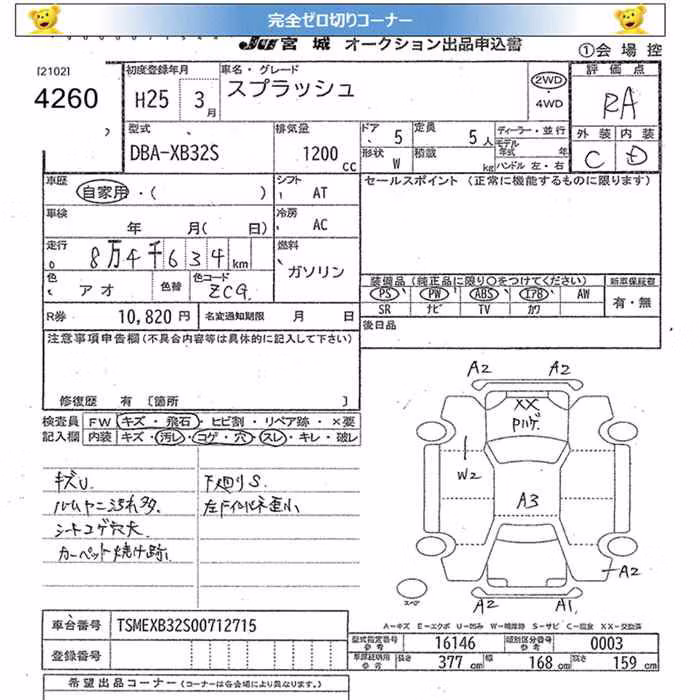 完全ゼロ切りコーナー
JU 宮城 オークション出品申込書
①会場控
[2102]
4260
初度登録年月
H25 3月
車名・グレード
スプラッシュ
2WD
・4WD
評価点
RA
外装 内装
C D
型式
DBA-XB32S
排気量
1200 cc
ドア 5
定員 5人
形状 W
積載 kg
ディーラー・並行
モデル年式 年
ハンドル 左・右
車歴
自家用・( )
シフト
AT
セールスポイント (正常に機能するものに限ります)
車検
年 月( 日)
冷房
AC
走行
8万4千634km
燃料
ガソリン
色
アオ
色替
色コード
ZCG
装備品 (純正品に限り○をつけてください)
新車保証書
PS PW ABS エアB AW
SR ナビ TV カワ
有・無
R券 10,820円
名変通知期限 月 日
後日品
注意事項申告欄(不具合内容等は具体的に記入して下さい)
修復歴 有 [箇所 ]
検査員記入欄
FW キズ・飛石・ヒビ割・リペア跡・×要
内装 キズ・汚レ・コゲ・穴・スレ・キレ・破レ
キズU.
ルームヤニ汚れ多.
シートコゲ穴大
カーペット焼け跡.
下廻りS.
A2 A2
XX
Pハゲ.
W2
A3
A2
A2 A1
スペア
A-キズ E-エクボ U-凹み W-補修跡 S-サビ C-腐食 XX-交換済
車台番号 TSMEXB32S00712715
登録番号
型式指定番号 参考 16146
類別区分番号 参考 0003
車庫証明用 参考 長さ 377 cm 幅 168 cm 高さ 159 cm
希望出品コーナー (コーナーは各会場により異なります。)